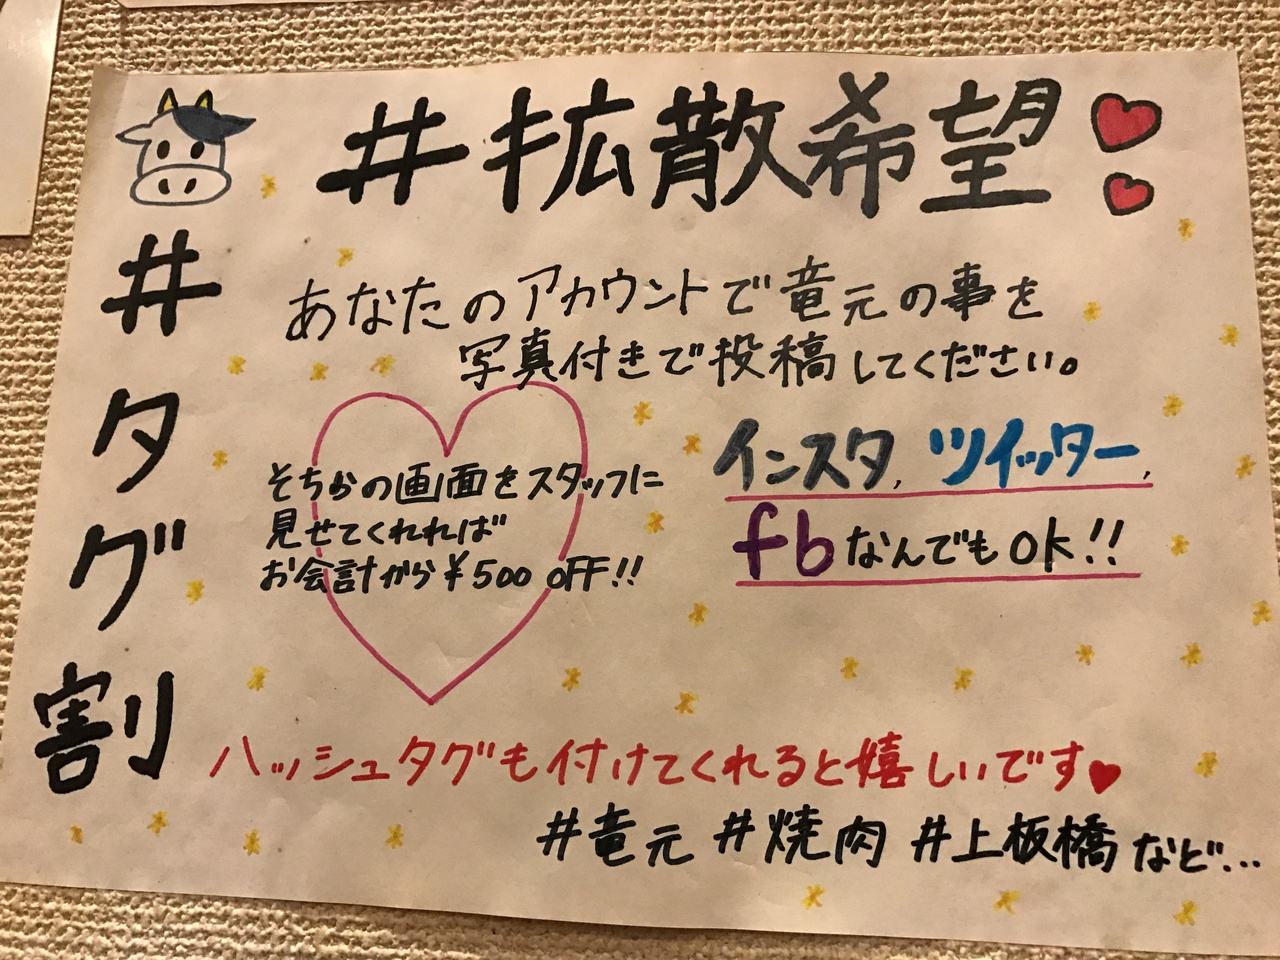 #拡散希望
#タグ割
あなたのアカウントで竜元の事を
写真付きで投稿してください。
そちらの画面をスタッフに
見せてくれれば
お会計から¥500 OFF!!
インスタ, ツイッター,
fbなんでもOK!!
ハッシュタグも付けてくれると嬉しいです♥
#竜元 #焼肉 #上板橋 など...